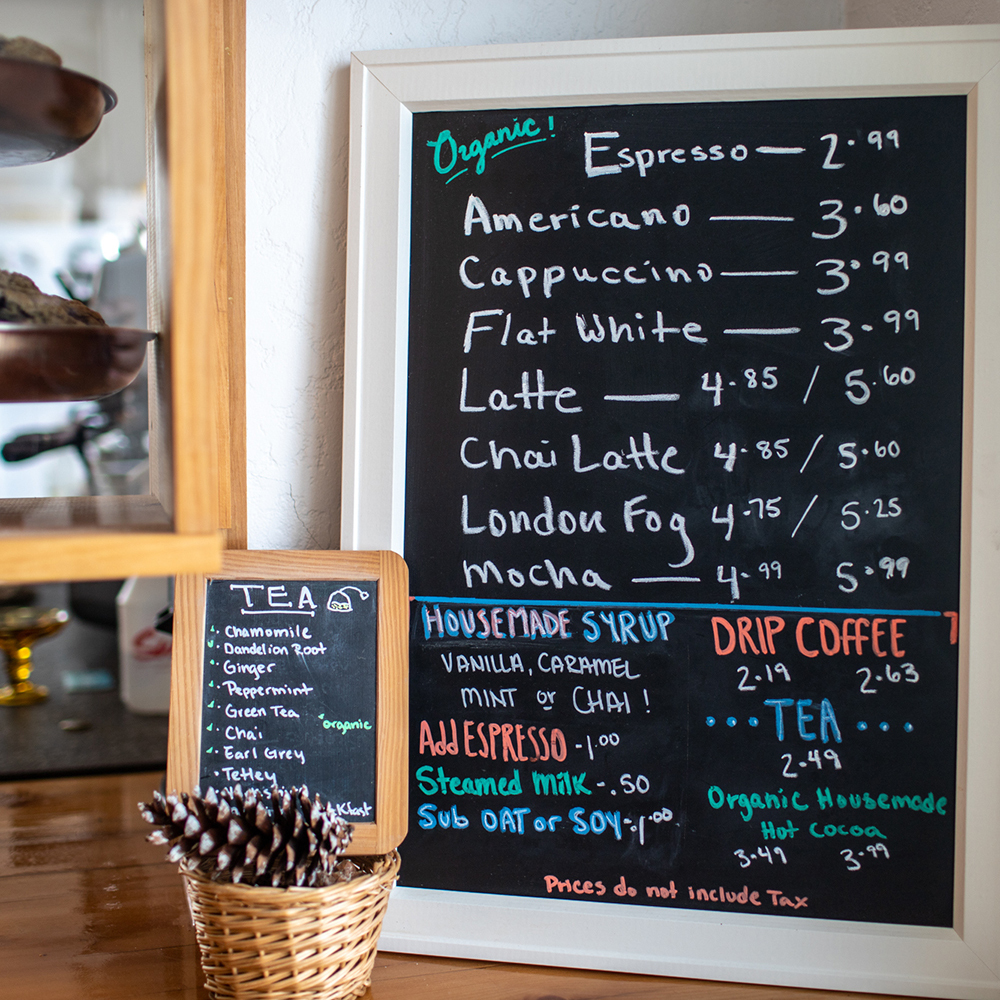 Organic!
Espresso — 2.99
Americano — 3.60
Cappuccino — 3.99
Flat White — 3.99
Latte — 4.85 / 5.60
Chai Latte 4.85 / 5.60
London Fog 4.75 / 5.25
Mocha — 4.99 5.99
HOUSEMADE SYRUP
VANILLA, CARAMEL
MINT or CHAI!
Add ESPRESSO -1.00
Steamed Milk -.50
Sub OAT or SOY -1.00
DRIP COFFEE
2.19 2.63
... TEA ...
2.49
Organic Housemade
Hot Cocoa
3.49 3.99
Prices do not include Tax
TEA
Chamomile
Dandelion Root
Ginger
Peppermint
Green Tea
organic
Chai
Earl Grey
Tetley